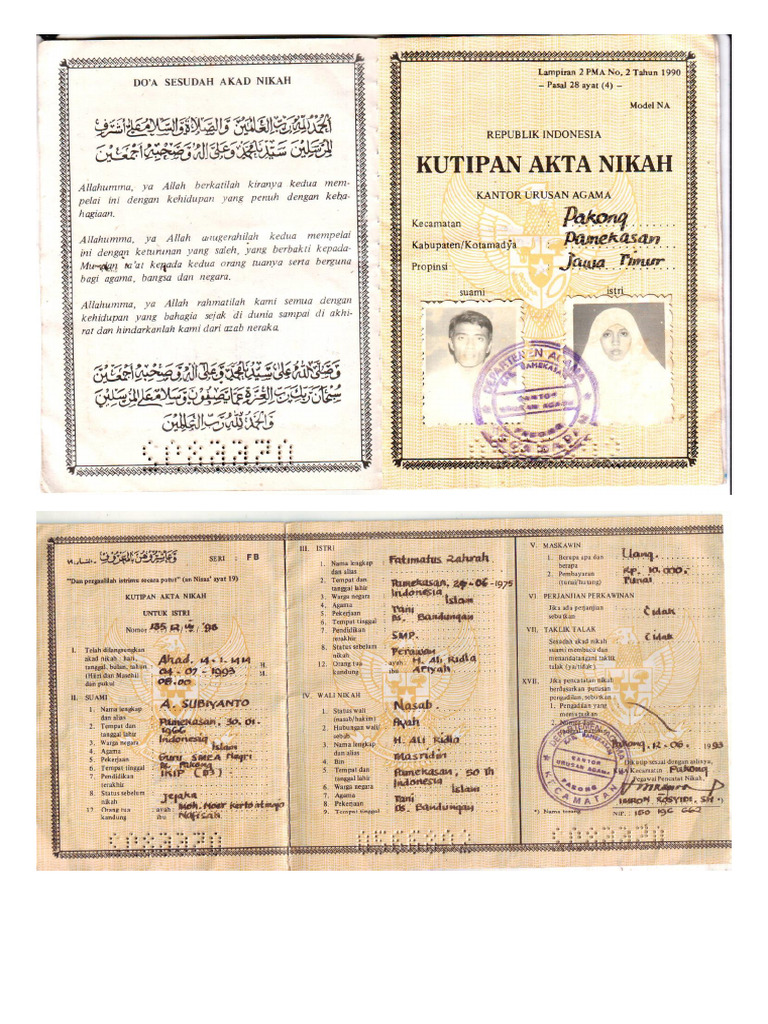 DO'A SESUDAH AKAD NIKAH
الحمد لله رب العالمين والصلاة والسلام على أشرف
المرسلين سيدنا محمد وعلى اله وصحبه أجمعين
Allahumma, ya Allah berkatilah kiranya kedua mem-
pelai ini dengan kehidupan yang penuh dengan keba-
hagiaan.
Allahumma, ya Allah anugerahilah kedua mempelai
ini dengan keturunan yang saleh, yang berbakti kepada-
Mu dan ta'at kepada kedua orang tuanya serta berguna
bagi agama, bangsa dan negara.
Allahumma, ya Allah rahmatilah kami semua dengan
kehidupan yang bahagia sejak di dunia sampai di akhi-
rat dan hindarkanlah kami dari azab neraka.
وصلى الله على سيدنا محمد وعلى اله وصحبه أجمعين
سبحان ربك رب العزة عما يصفون وسلام على المرسلين
والحمد لله رب العالمين
Lampiran 2 PMA No, 2 Tahun 1990
– Pasal 28 ayat (4) –
Model NA
REPUBLIK INDONESIA
KUTIPAN AKTA NIKAH
KANTOR URUSAN AGAMA
Kecamatan : Pakong
Kabupaten/Kotamadya : Pamekasan
Propinsi : Jawa Timur
suami istri
DEPARTEMEN AGAMA
KAB. PAMEKASAN
KANTOR
URUSAN AGAMA
PAKONG
KECAMATAN
SERI : FB
"Dan pergaulilah istrimu secara patut" (an Nisaa' ayat 19)
KUTIPAN AKTA NIKAH
UNTUK ISTRI
Nomor
I. Telah dilangsungkan
akad nikah : hari, Ahad. 14-1-1414 H.
tanggal, bulan, tahun 04-07-1993 M.
(Hijri dan Masehi)
dan pukul 08.00
II. SUAMI A. SUBIYANTO
1. Nama lengkap
dan alias
2. Tempat dan Pamekasan, 30.01
tanggal lahir 1966
3. Warga negara Indonesia
4. Agama Islam
5. Pekerjaan Guru SMEA Negri
6. Tempat tinggal Pakong
7. Pendidikan IKIP (D3)
terakhir
8. Status sebelum Jejaka
nikah
17. Orang tua ayah : Moh. Noer Kertoatmojo
kandung ibu Nafisah
III. ISTRI
1. Nama lengkap Fatimatus Zahrah
dan alias
2. Tempat dan Pamekasan, 24-06-1975
tanggal lahir
3. Warga negara Indonesia
4. Agama Islam
5. Pekerjaan Tani
6. Tempat tinggal Ds. Bandungan
7. Pendidikan SMP.
terakhir
8. Status sebelum Perawan
nikah
12. Orang tua ayah H. Ali Ridla
kandung ibu Atiyah
IV. WALI NIKAH
1. Status wali Nasab.
(nasab/hakim)
2. Hubungan wali/ Ayah
sebab
3. Nama lengkap H. Ali Ridlo
dan alias
4. Bin Masridin
5. Tempat dan Pamekasan, 50 th
tanggal lahir
6. Warga negara Indonesia
7. Agama Islam
8. Pekerjaan Tani
9. Tempat tinggal Ds. Bandungan
V. MASKAWIN
1. Berapa apa dan Uang.
berapa Rp. 10.000,-
2. Pembayaran Tunai
(tunai/hutang)
VI PERJANJIAN PERKAWINAN
Jika ada perjanjian Tidak
sebutkan
VII. TAKLIK TALAK
Sesudah akad nikah Tidak
suami membaca dan
menandatangani taklik
talak (ya/tidak)
XVII. Jika pencatatan nikah
berdasarkan putusan
pengadilan, sebutkan :
1. Pengadilan yang
memutuskan
Pakong, 12-06-1993
Kecamatan Pakong
Pegawai Pencatat Nikah,
IMRON ROSYIDI, SH
*) Nama terang NIP. : 150 196 662
DEPARTEMEN AGAMA
KAB. PAMEKASAN
KANTOR
URUSAN AGAMA
PAKONG
KECAMATAN